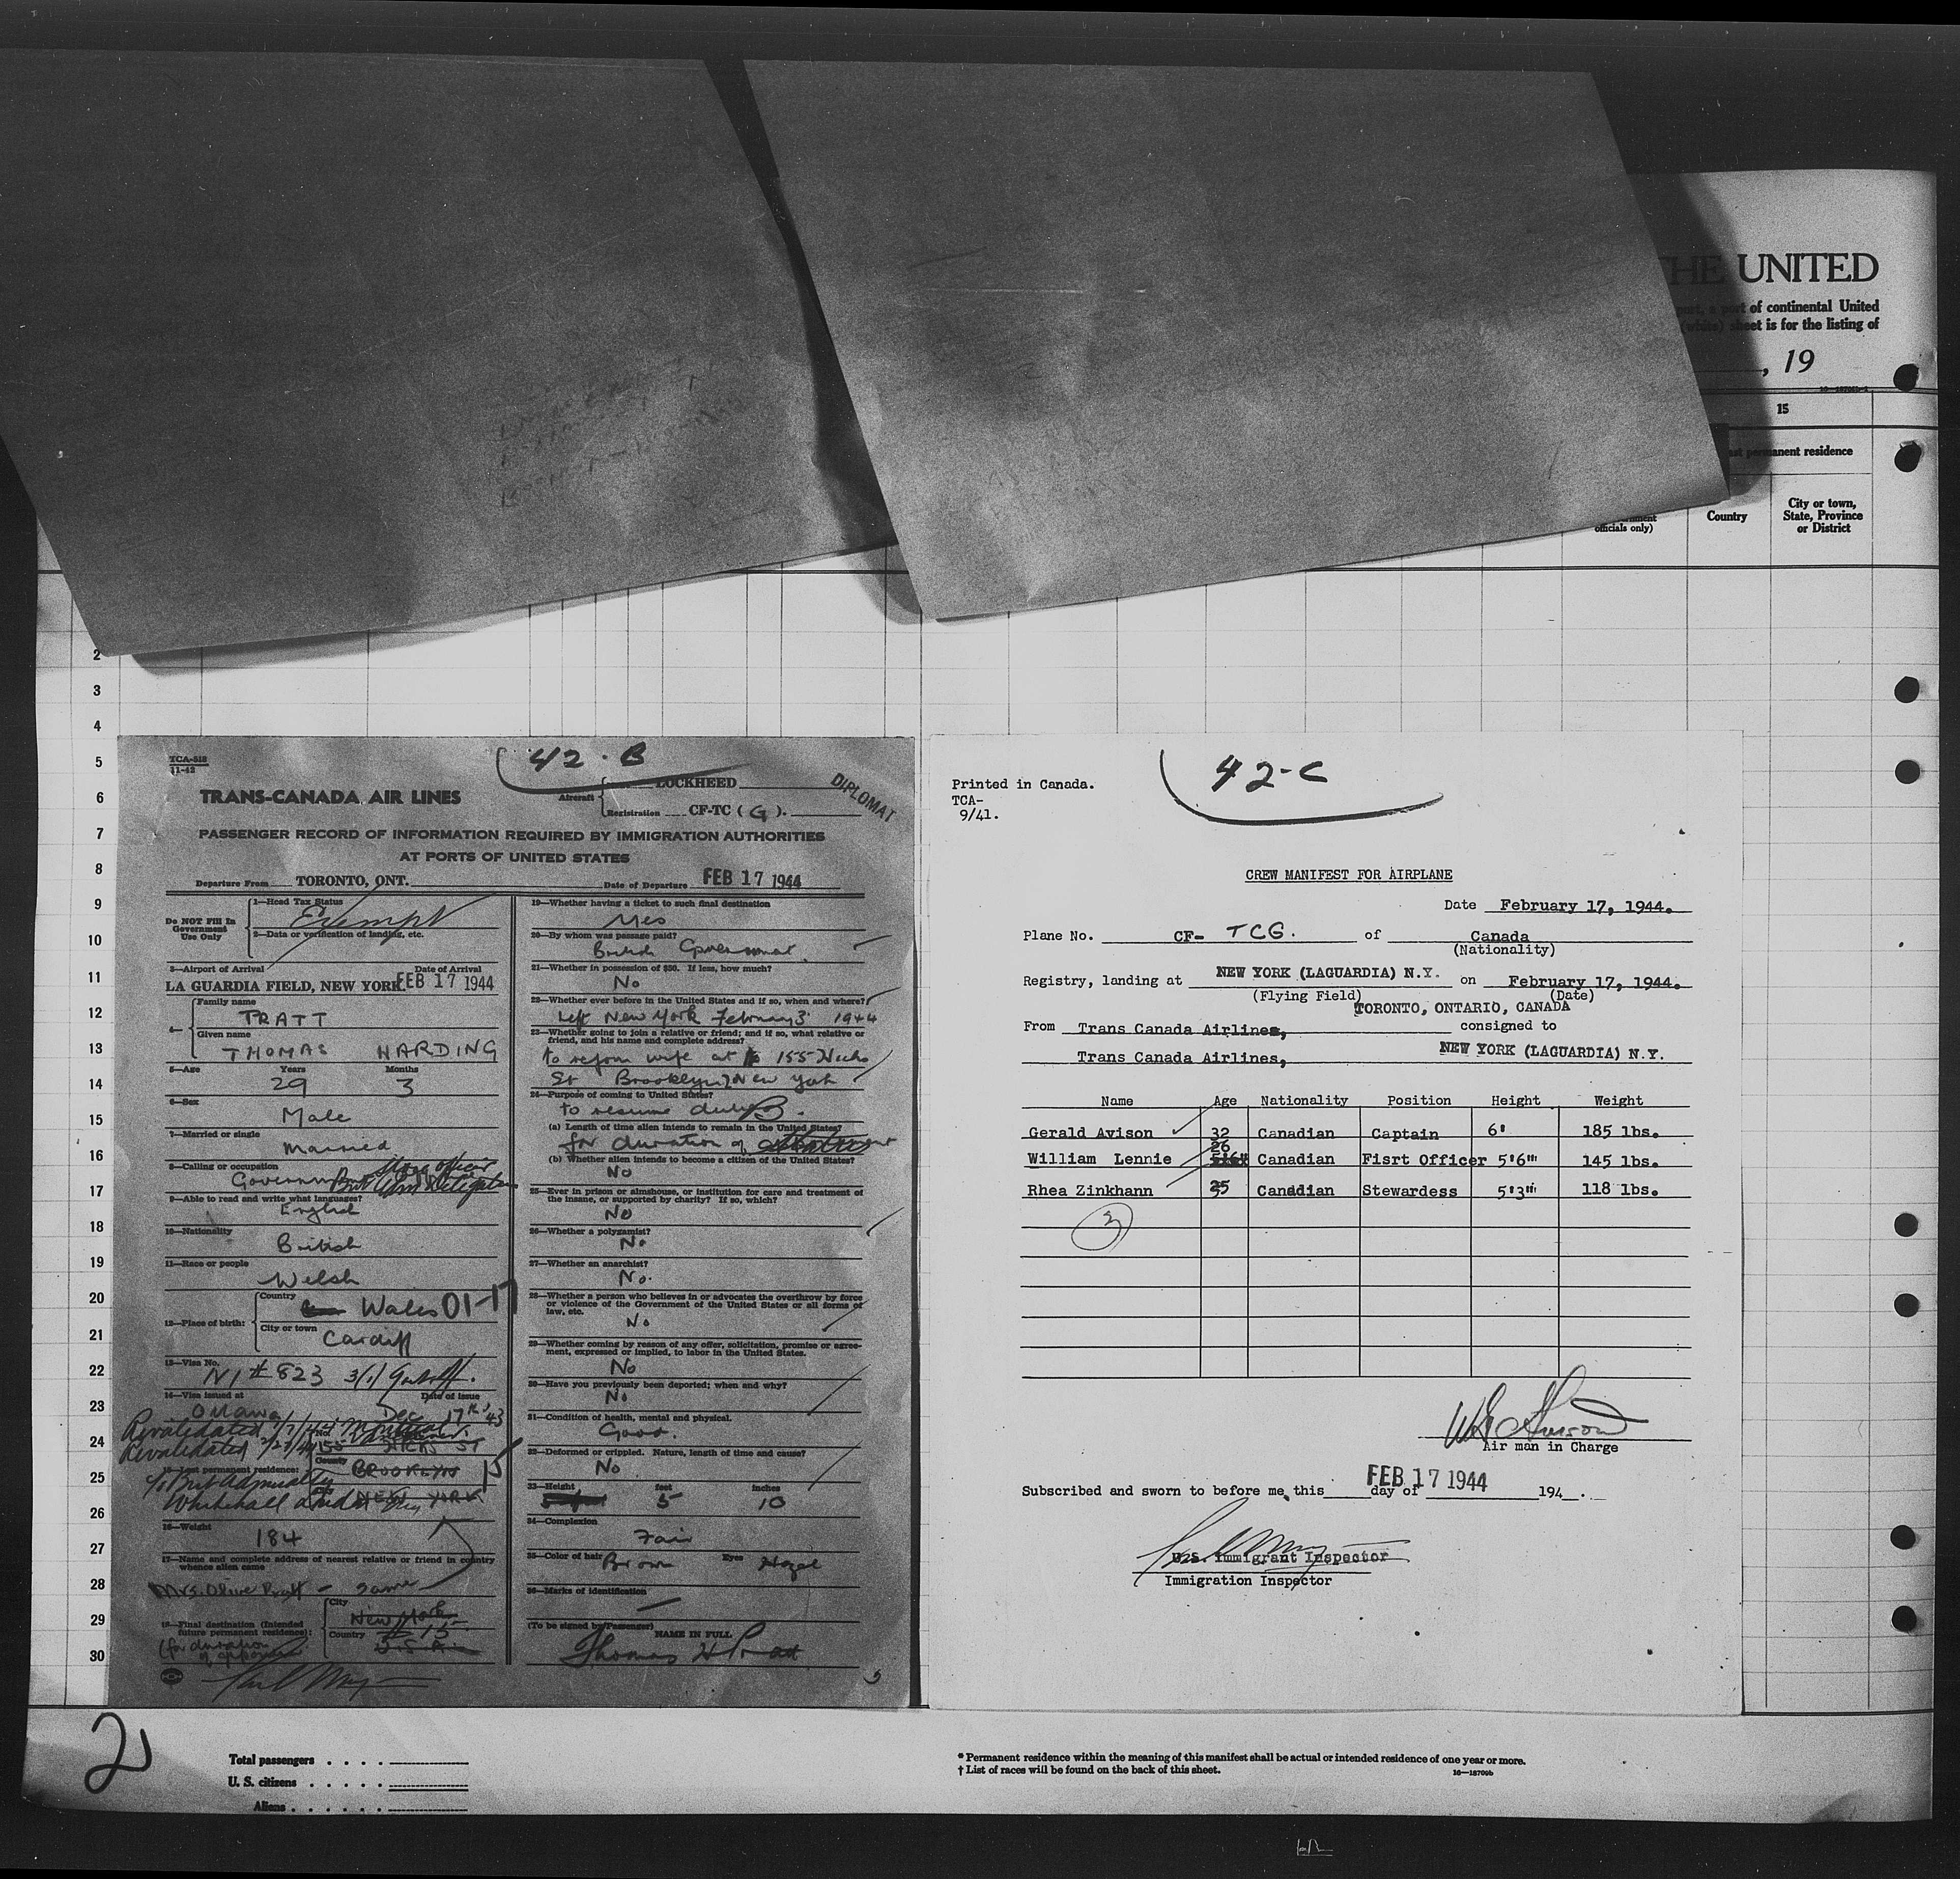 THE UNITED
port, a port of continental United
(white) sheet is for the listing of
, 19
15
permanent residence
officials only)
Country
City or town,
State, Province
or District
2
3
4
5
6
7
8
9
10
11
12
13
14
15
16
17
18
19
20
21
22
23
24
25
26
27
28
29
30
TCA-518
11-42
42-B
TRANS-CANADA AIR LINES
Aircraft
LOCKHEED
Registration CF-TC (G).
DIPLOMAT
PASSENGER RECORD OF INFORMATION REQUIRED BY IMMIGRATION AUTHORITIES
AT PORTS OF UNITED STATES
Departure From TORONTO, ONT.
Date of Departure FEB 17 1944
Do NOT Fill In
Government
Use Only
1—Head Tax Status
Exempt
2—Data or verification of landing, etc.
3—Airport of Arrival
Date of Arrival
LA GUARDIA FIELD, NEW YORK.
FEB 17 1944
4—
Family name
PRATT
Given name
THOMAS HARDING
5—Age Years Months
29 3
6—Sex
Male
7—Married or single
Married
8—Calling or occupation
9—Able to read and write what languages?
English
10—Nationality
British
11—Race or people
Welsh
12—Place of birth:
Country
Wales 01-17
City or town
Cardiff
13—Visa No.
NI # 823 3(1)
14—Visa issued at
Date of issue
Ottawa
Dec 17th '43
Revalidated
Revalidated
155 HICKS ST
15—Last permanent residence:
County
BROOKLYN
15
c/o Brit Admiralty
Whitehall
NEW YORK
16—Weight
184
17—Name and complete address of nearest relative or friend in country
whence alien came
Mrs. Olive Pratt - same
18—Final destination (Intended
future permanent residence):
City
New York
Country
15
U.S.A.
(for duration
19—Whether having a ticket to such final destination
Yes
20—By whom was passage paid?
British Government
21—Whether in possession of $50. If less, how much?
No
22—Whether ever before in the United States and if so, when and where?
Left New York February 3 1944
23—Whether going to join a relative or friend; and if so, what relative or
friend, and his name and complete address?
to rejoin wife at 155 Hicks
St Brooklyn, New York
24—Purpose of coming to United States?
to resume duty
(a) Length of time alien intends to remain in the United States?
for duration of
(b) Whether alien intends to become a citizen of the United States?
No
25—Ever in prison or almshouse, or institution for care and treatment of
the insane, or supported by charity? If so, which?
No
26—Whether a polygamist?
No.
27—Whether an anarchist?
No.
28—Whether a person who believes in or advocates the overthrow by force
or violence of the Government of the United States or all forms of
law, etc.
No
29—Whether coming by reason of any offer, solicitation, promise or agree-
ment, expressed or implied, to labor in the United States.
No
30—Have you previously been deported; when and why?
No
31—Condition of health, mental and physical.
Good.
32—Deformed or crippled. Nature, length of time and cause?
No
33—Height feet inches
5 10
34—Complexion
Fair
35—Color of hair Brown Eyes Hazel
36—Marks of identification
—
(To be signed by Passenger) NAME IN FULL
Thomas H Pratt
42-C
Printed in Canada.
TCA-
9/41.
CREW MANIFEST FOR AIRPLANE
Date February 17, 1944.
Plane No. CF- TCG. of Canada
(Nationality)
Registry, landing at NEW YORK (LAGUARDIA) N.Y. on February 17, 1944.
(Flying Field) (Date)
TORONTO, ONTARIO, CANADA
From Trans Canada Airlines, consigned to
Trans Canada Airlines, NEW YORK (LAGUARDIA) N.Y.
Name Age Nationality Position Height Weight
Gerald Avison 32 Canadian Captain 6' 185 lbs.
William Lennie 26 Canadian Fisrt Officer 5'6"' 145 lbs.
Rhea Zinkhann 25 Canadian Stewardess 5'3"' 118 lbs.
3
Air man in Charge
Subscribed and sworn to before me this day of FEB 17 1944 194 .
U.S. Immigrant Inspector
Immigration Inspector
21
Total passengers . . . .
U. S. citizens . . . . .
Aliens . . . . . .
* Permanent residence within the meaning of this manifest shall be actual or intended residence of one year or more.
† List of races will be found on the back of this sheet.